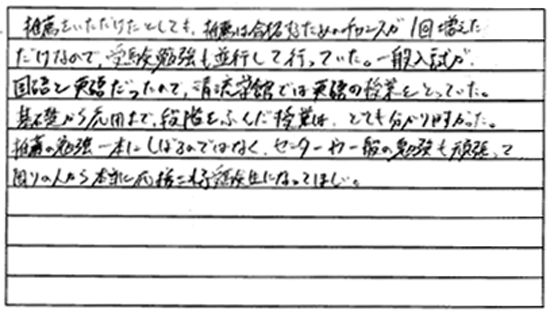 推薦をいただけたとしても、推薦は合格するためのチャンスが1回増えた
だけなので、受験勉強も並行して行っていた。一般入試が、
国語と英語だったので、清流学館では英語の授業をとっていた。
基礎から応用まで、段階をふんだ授業は、とても分かり易かった。
推薦の勉強一本にしぼるのではなく、センターや一般の勉強も頑張って
周りの人から本気で応援される受験生になってほしい。